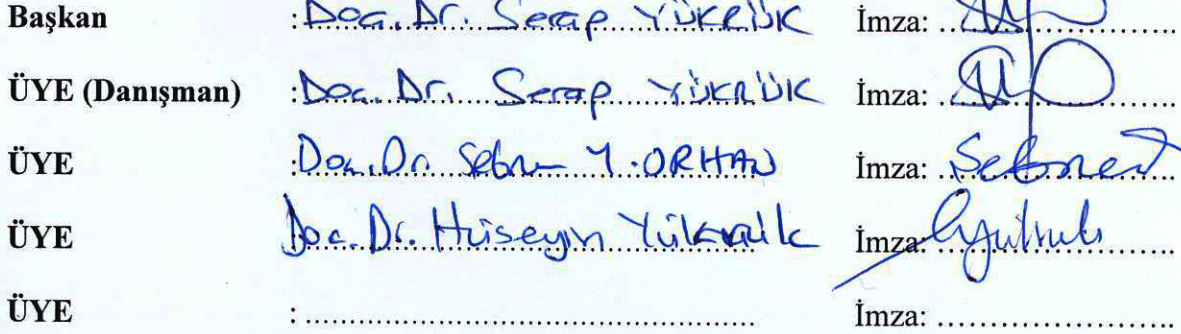 Başkan : Doç. Dr. Serap YÜKRÜK İmza: ........................
ÜYE (Danışman) : Doç. Dr. Serap YÜKRÜK İmza: ........................
ÜYE : Doç. Dr. Y. ORHAN İmza: ........................
ÜYE Doç. Dr. Hüseyin Yükrük İmza: ........................
ÜYE : ................................................ İmza: ........................